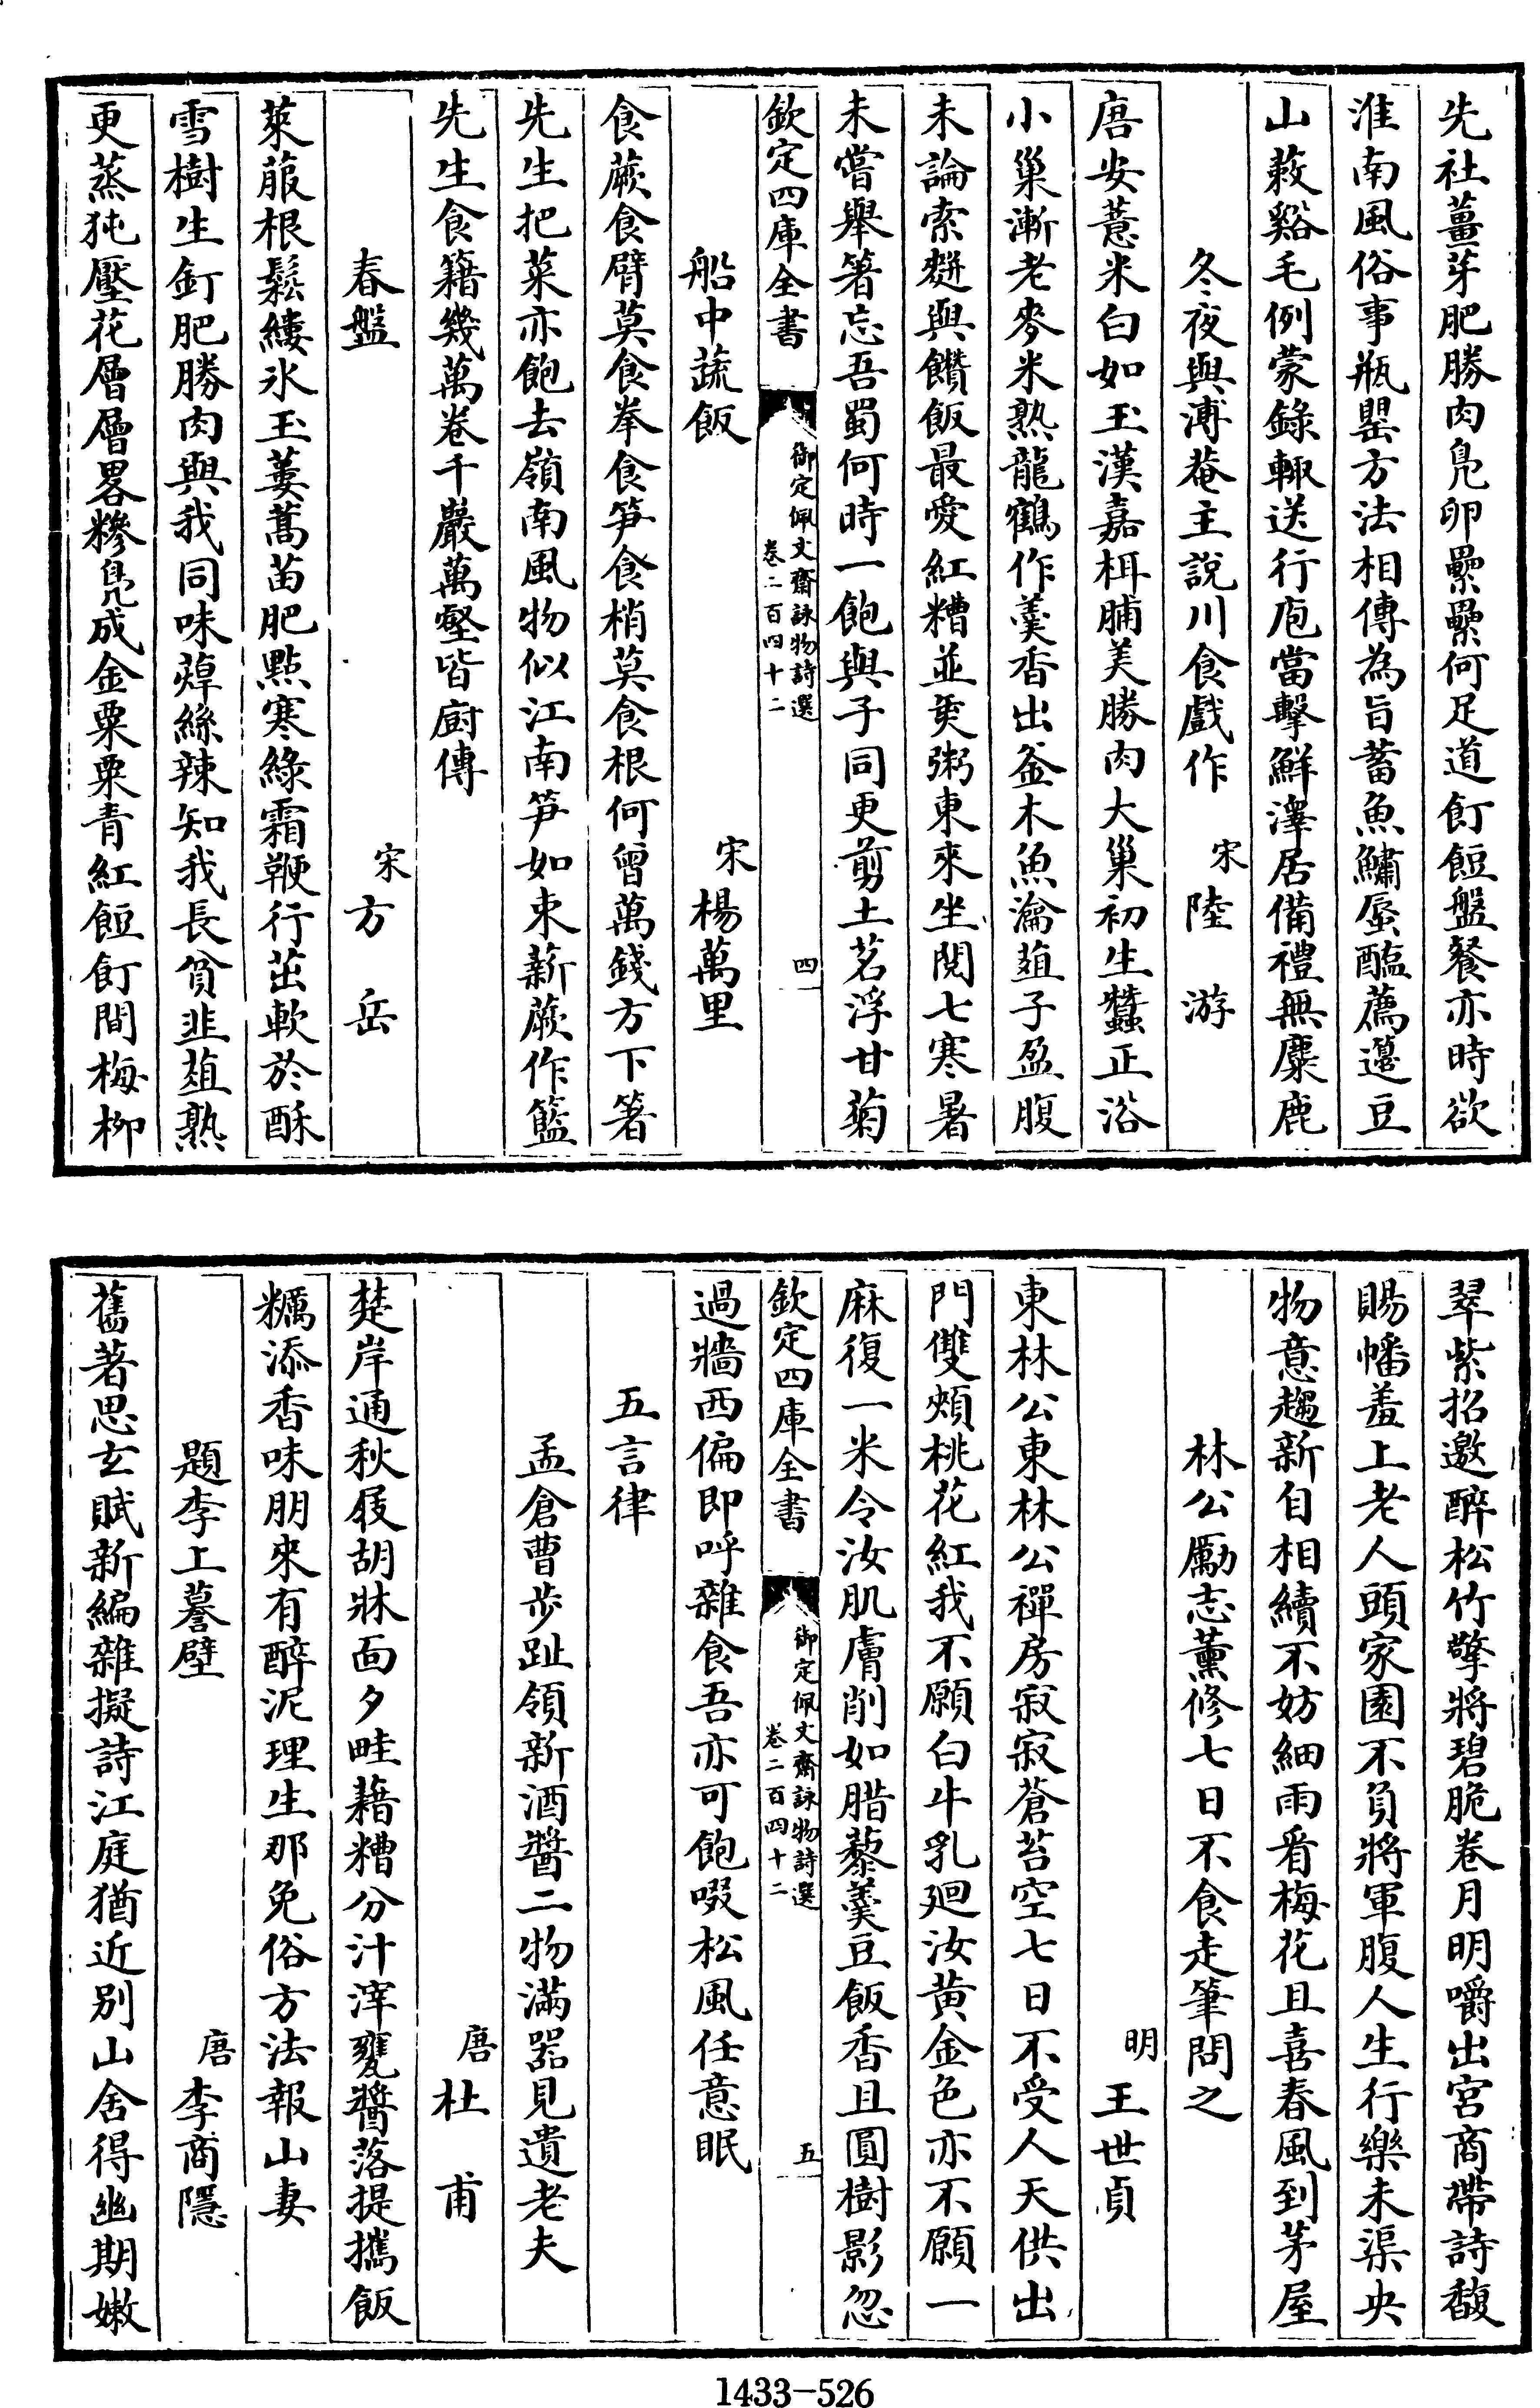 先社薑芽肥勝肉鳧卵纍纍何足道飣餖盤餐亦時欲
淮南風俗事瓶罌方法相傳為旨蓄魚鱐蜃醢薦籩豆
山蔌谿毛例蒙錄輙送行庖當擊鮮澤居備禮無麋鹿
冬夜與溥菴主說川食戲作 宋 陸游
唐安薏米白如玉漢嘉栮脯美勝肉大巢初生蠶正浴
小巢漸老麥米熟龍鶴作羮香出釜木魚瀹葅子盈腹
未論索䴵與饡飯最愛紅糟並缹粥東來坐閱七寒暑
未嘗舉箸忘吾蜀何時一飽與子同更剪土茗浮甘菊
欽定四庫全書 御定佩文齋詠物詩選 卷二百四十二 四
船中蔬飯 宋 楊萬里
食蕨食臂莫食拳食笋食梢莫食根何曾萬錢方下箸
先生把菜亦飽去嶺南風物似江南笋如束薪蕨作籃
先生食籍幾萬卷千巖萬壑皆廚傳
春盤 宋 方岳
萊菔根鬆縷氷玉蔞蒿苗肥點寒綠霜鞭行茁軟於酥
雪樹生釘肥勝肉與我同味蕇絲辣知我長貧韭葅熟
更蒸㹠壓花層層畧糝鳧成金粟粟青紅餖飣間梅柳
翠紫招邀醉松竹擎將碧脆卷月明嚼出宮商帶詩馥
賜幡羞上老人頭家園不負將軍腹人生行樂未渠央
物意趨新自相續不妨細雨看梅花且喜春風到茅屋
林公勵志薰修七日不食走筆問之
明 王世貞
東林公東林公禪房寂寂蒼苔空七日不受人天供出
門雙頰桃花紅我不願白牛乳廻汝黄金色亦不願一
麻復一米令汝肌膚削如腊藜羮豆飯香且圓樹影忽
欽定四庫全書 御定佩文齋詠物詩選 卷二百四十二 五
過牆西偏即呼雜食吾亦可飽啜松風任意眠
五言律
孟倉曹步趾領新酒醬二物滿器見遺老夫
唐 杜甫
楚岸通秋屐胡牀面夕畦藉糟分汁滓甕醬落提攜飯
糲添香味朋來有醉泥理生那免俗方法報山妻
題李上謩壁 唐 李商隱
舊著思玄賦新編雜擬詩江庭猶近别山舍得幽期嫩
1433-526